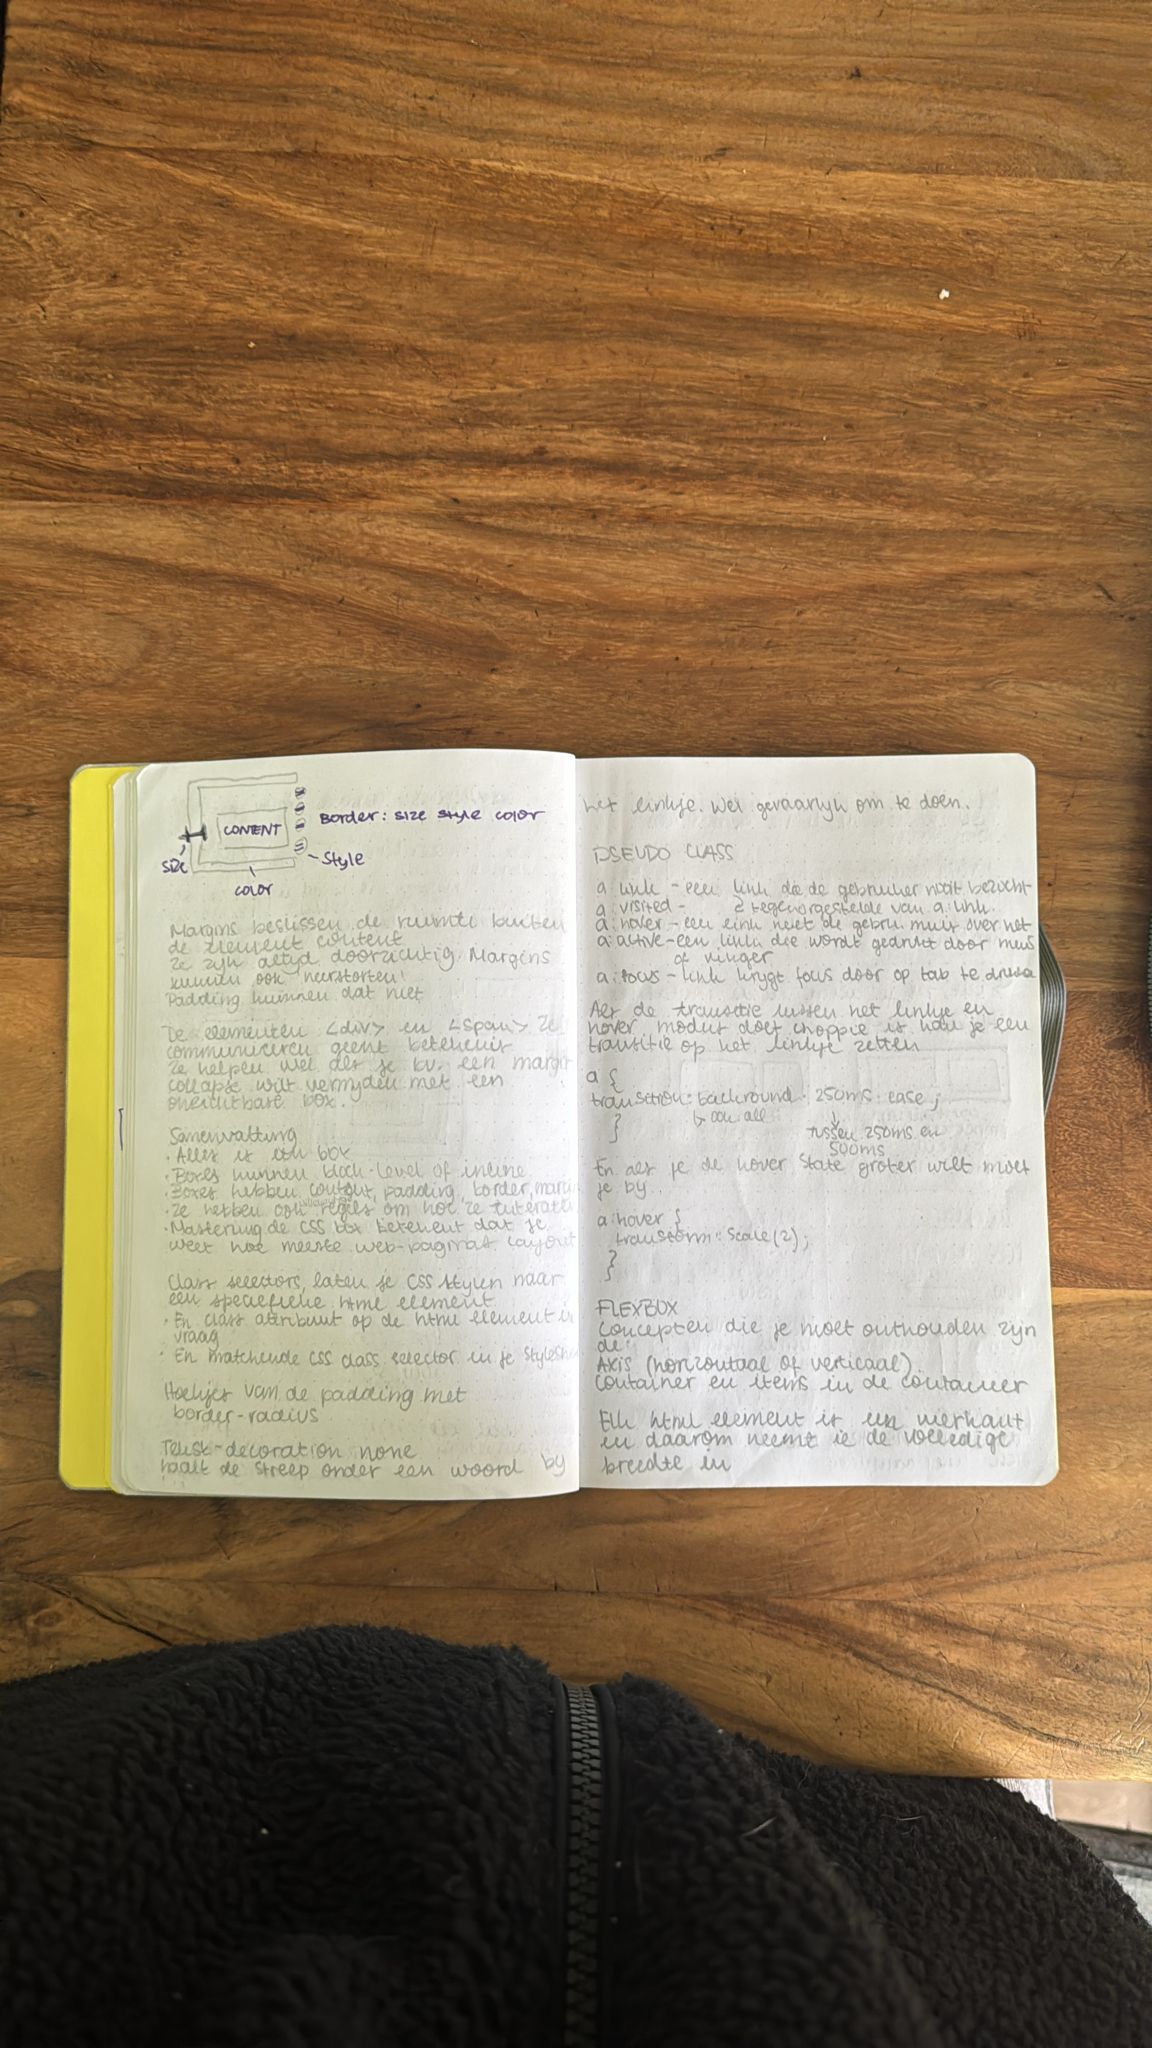 CONTENT
Border: size style color
size
Style
color
Margins beslissen de ruimte buiten
de element content
Ze zijn altijd doorzichtig. Margins
kunnen ook neerstorten!
Padding kunnen dat niet
De elementen <div> en <span> ze
communiceren geen betekenis
Ze helpen wel als je bv. een margin
collapse wilt vermijden met een
onzichtbare box.
Samenvatting
· Alles is een box
· Boxes kunnen block-level of inline
· Boxes hebben content, padding, border, margin
· Ze hebben ook regels om hoe ze
· Mastering de CSS box betekent dat je
weet hoe meeste web-pagina's layout
Class selectors, laten je CSS stylen naar
een specifieke html element
· En class attribuut op de html element in
vraag
· En matchende CSS class selector in je Stylesh
Hoekjes van de padding met
border-radius
Tekst-decoration none
haalt de streep onder een woord by
het linkje. Wel gevaarlijk om te doen.
PSEUDO CLASS
a: link - een link die de gebruiker nooit bezocht
a: visited - tegenovergestelde van a: link.
a: hover - een link heet de gebru. muis over het
a: active - een link die wordt gedrukt door muis
of vinger
a: focus - link krygt focus door op tab te drukken
Als de transitie tussen het linkje en
hover modus doet choppie is kan je een
transitie op het linkje zetten
a {
transition: backround 250ms ease;
ook all
}
tussen 250ms en
500ms
En als je de hover state groter wilt moet
je by
a:hover {
transform: Scale(2);
}
FLEXBOX
Concepten die je moet onthouden zijn
de:
Axis (horizontaal of verticaal).
container en items in de container
Elk html element is een vierkant
en daarom neemt ie de volledige
breedte in